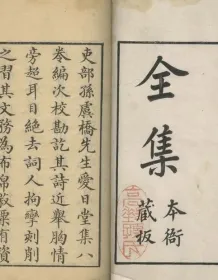 全集
本衙
藏板
吏部孫虞橋先生愛日堂集八
卷編次校勘訖其詩近舉胸情
旁超耳目絶去詞人拘攣刻削
之習其文務為布帛菽粟有資